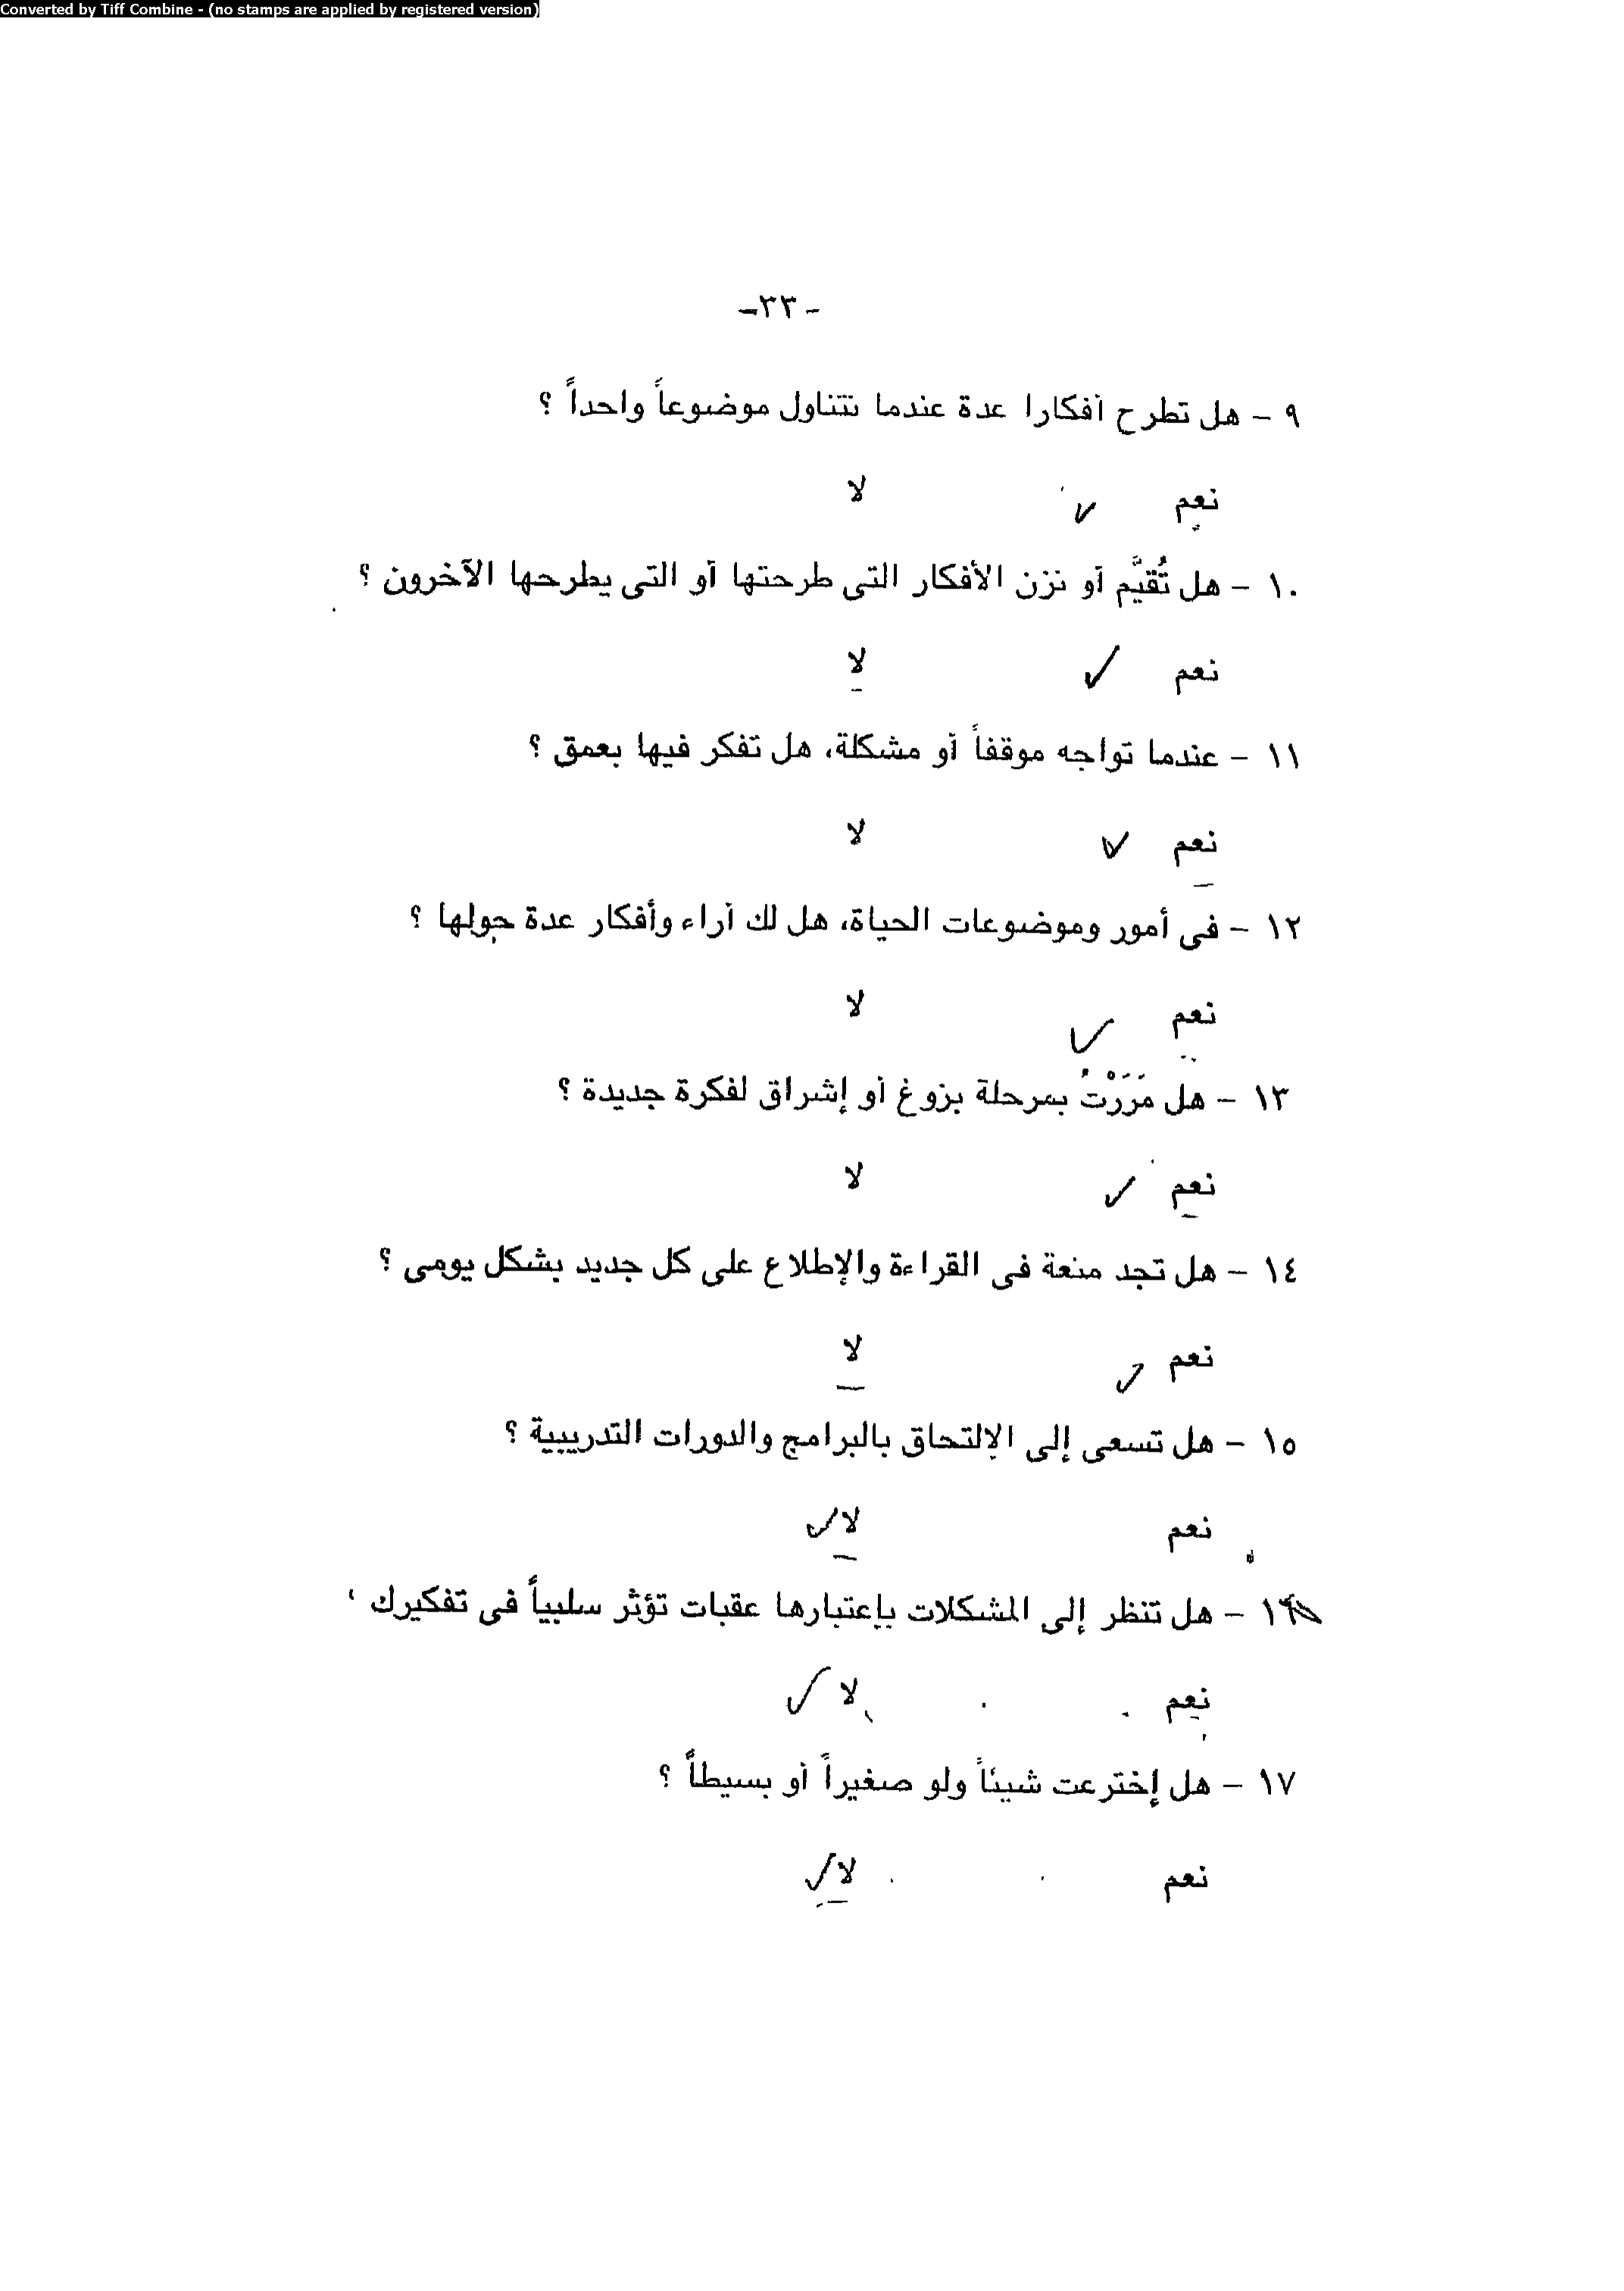 Converted by Tiff Combine - (no stamps are applied by registered version)
-٣٣-
٩ - هل تطرح أفكارا عدة عندما تتناول موضوعاً واحداً ؟
نعم ✓ لا
١٠ - هل تُقيَّم أو تزن الأفكار التى طرحتها أو التى يطرحها الآخرون ؟
نعم ✓ لا
١١ - عندما تواجه موقفاً أو مشكلة، هل تفكر فيها بعمق ؟
نعم ✓ لا
١٢ - فى أمور وموضوعات الحياة، هل لك أراء وأفكار عدة حولها ؟
نعم ✓ لا
١٣ - هل مَرَرْتُ بمرحلة بزوغ أو إشراق لفكرة جديدة ؟
نعم ✓ لا
١٤ - هل تجد متعة فى القراءة والإطلاع على كل جديد بشكل يومى ؟
نعم ✓ لا
١٥ - هل تسعى إلى الإلتحاق بالبرامج والدورات التدريبية ؟
نعم لا ✓
١٦ - هل تنظر إلى المشكلات بإعتبارها عقبات تؤثر سلبياً فى تفكيرك
نعم لا ✓
١٧ - هل إخترعت شيئاً ولو صغيراً أو بسيطاً ؟
نعم لا ✓